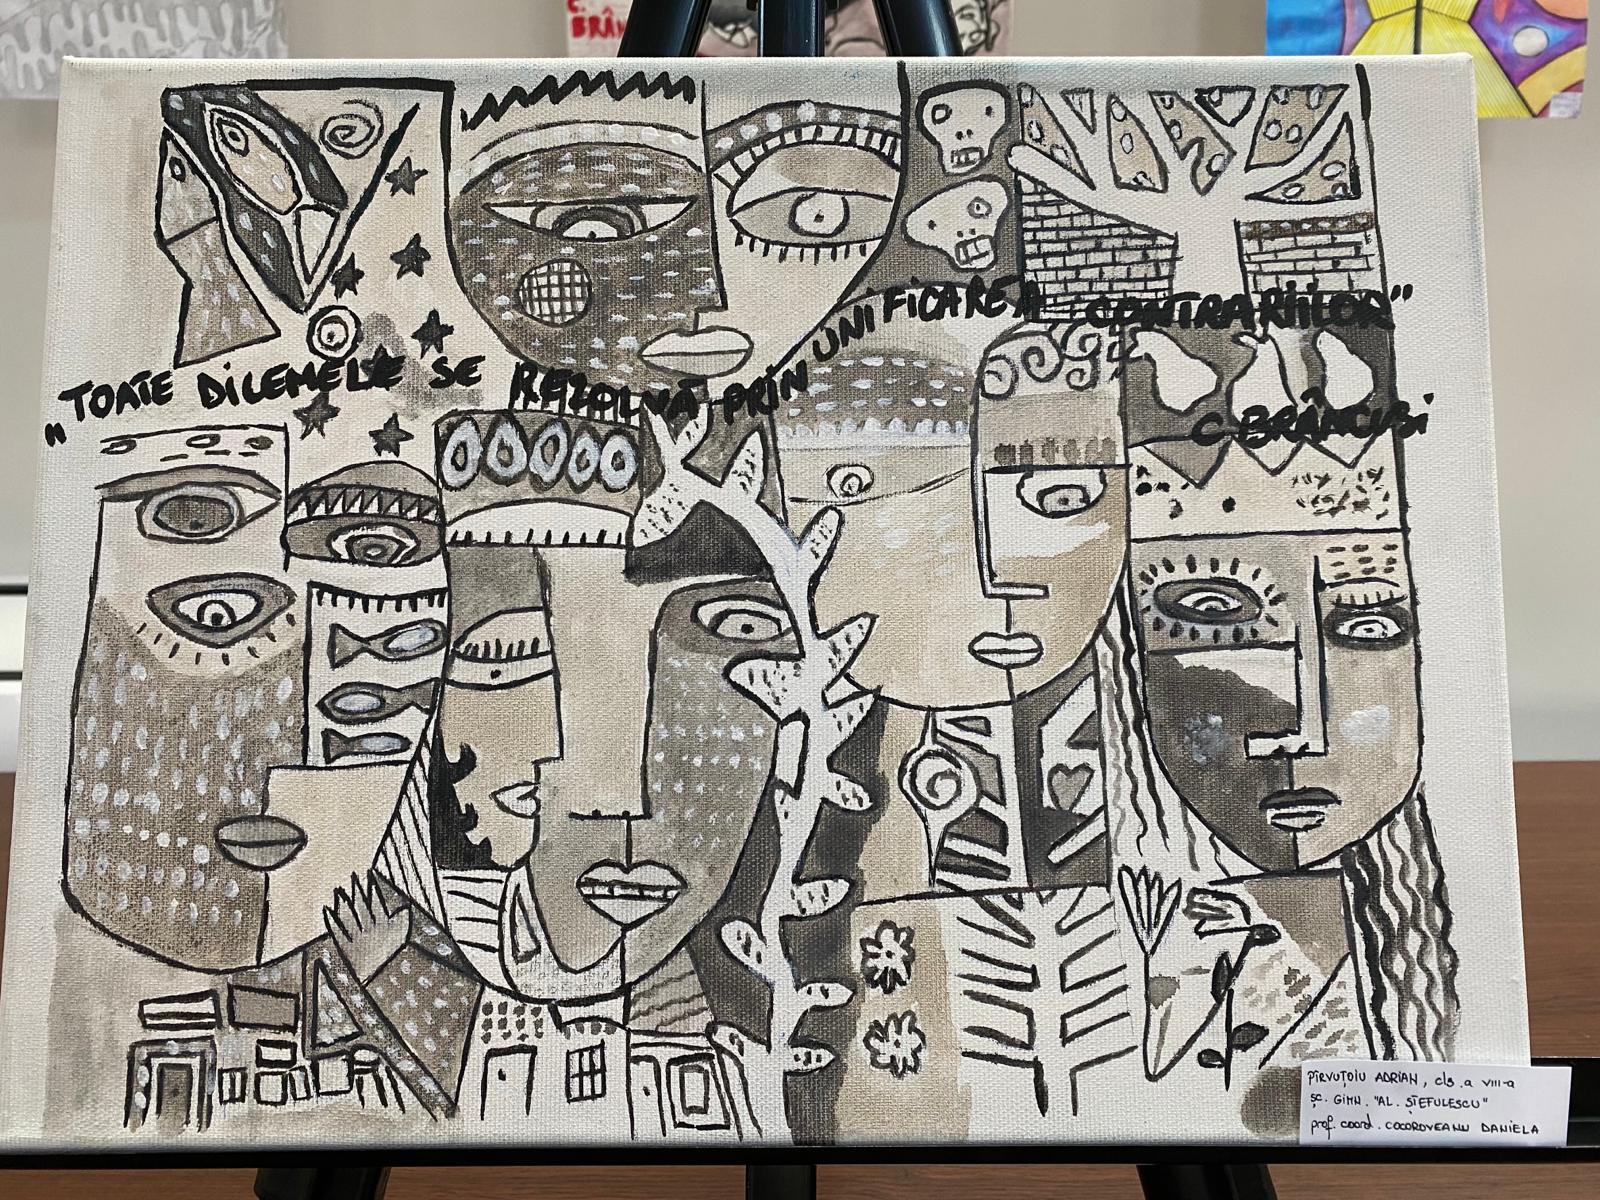 C.
BRÂN
„TOATE DILEMELE SE REZOLVĂ PRIN UNIFICAREA CONTRARIILOR"
C BRÂNCUSi
PÎRVUȚOIU ADRIAN, cls. a VIII-a
ȘC. GIMN. "AL. ȘTEFULESCU"
prof. coord. COCOROVEANU DANIELA